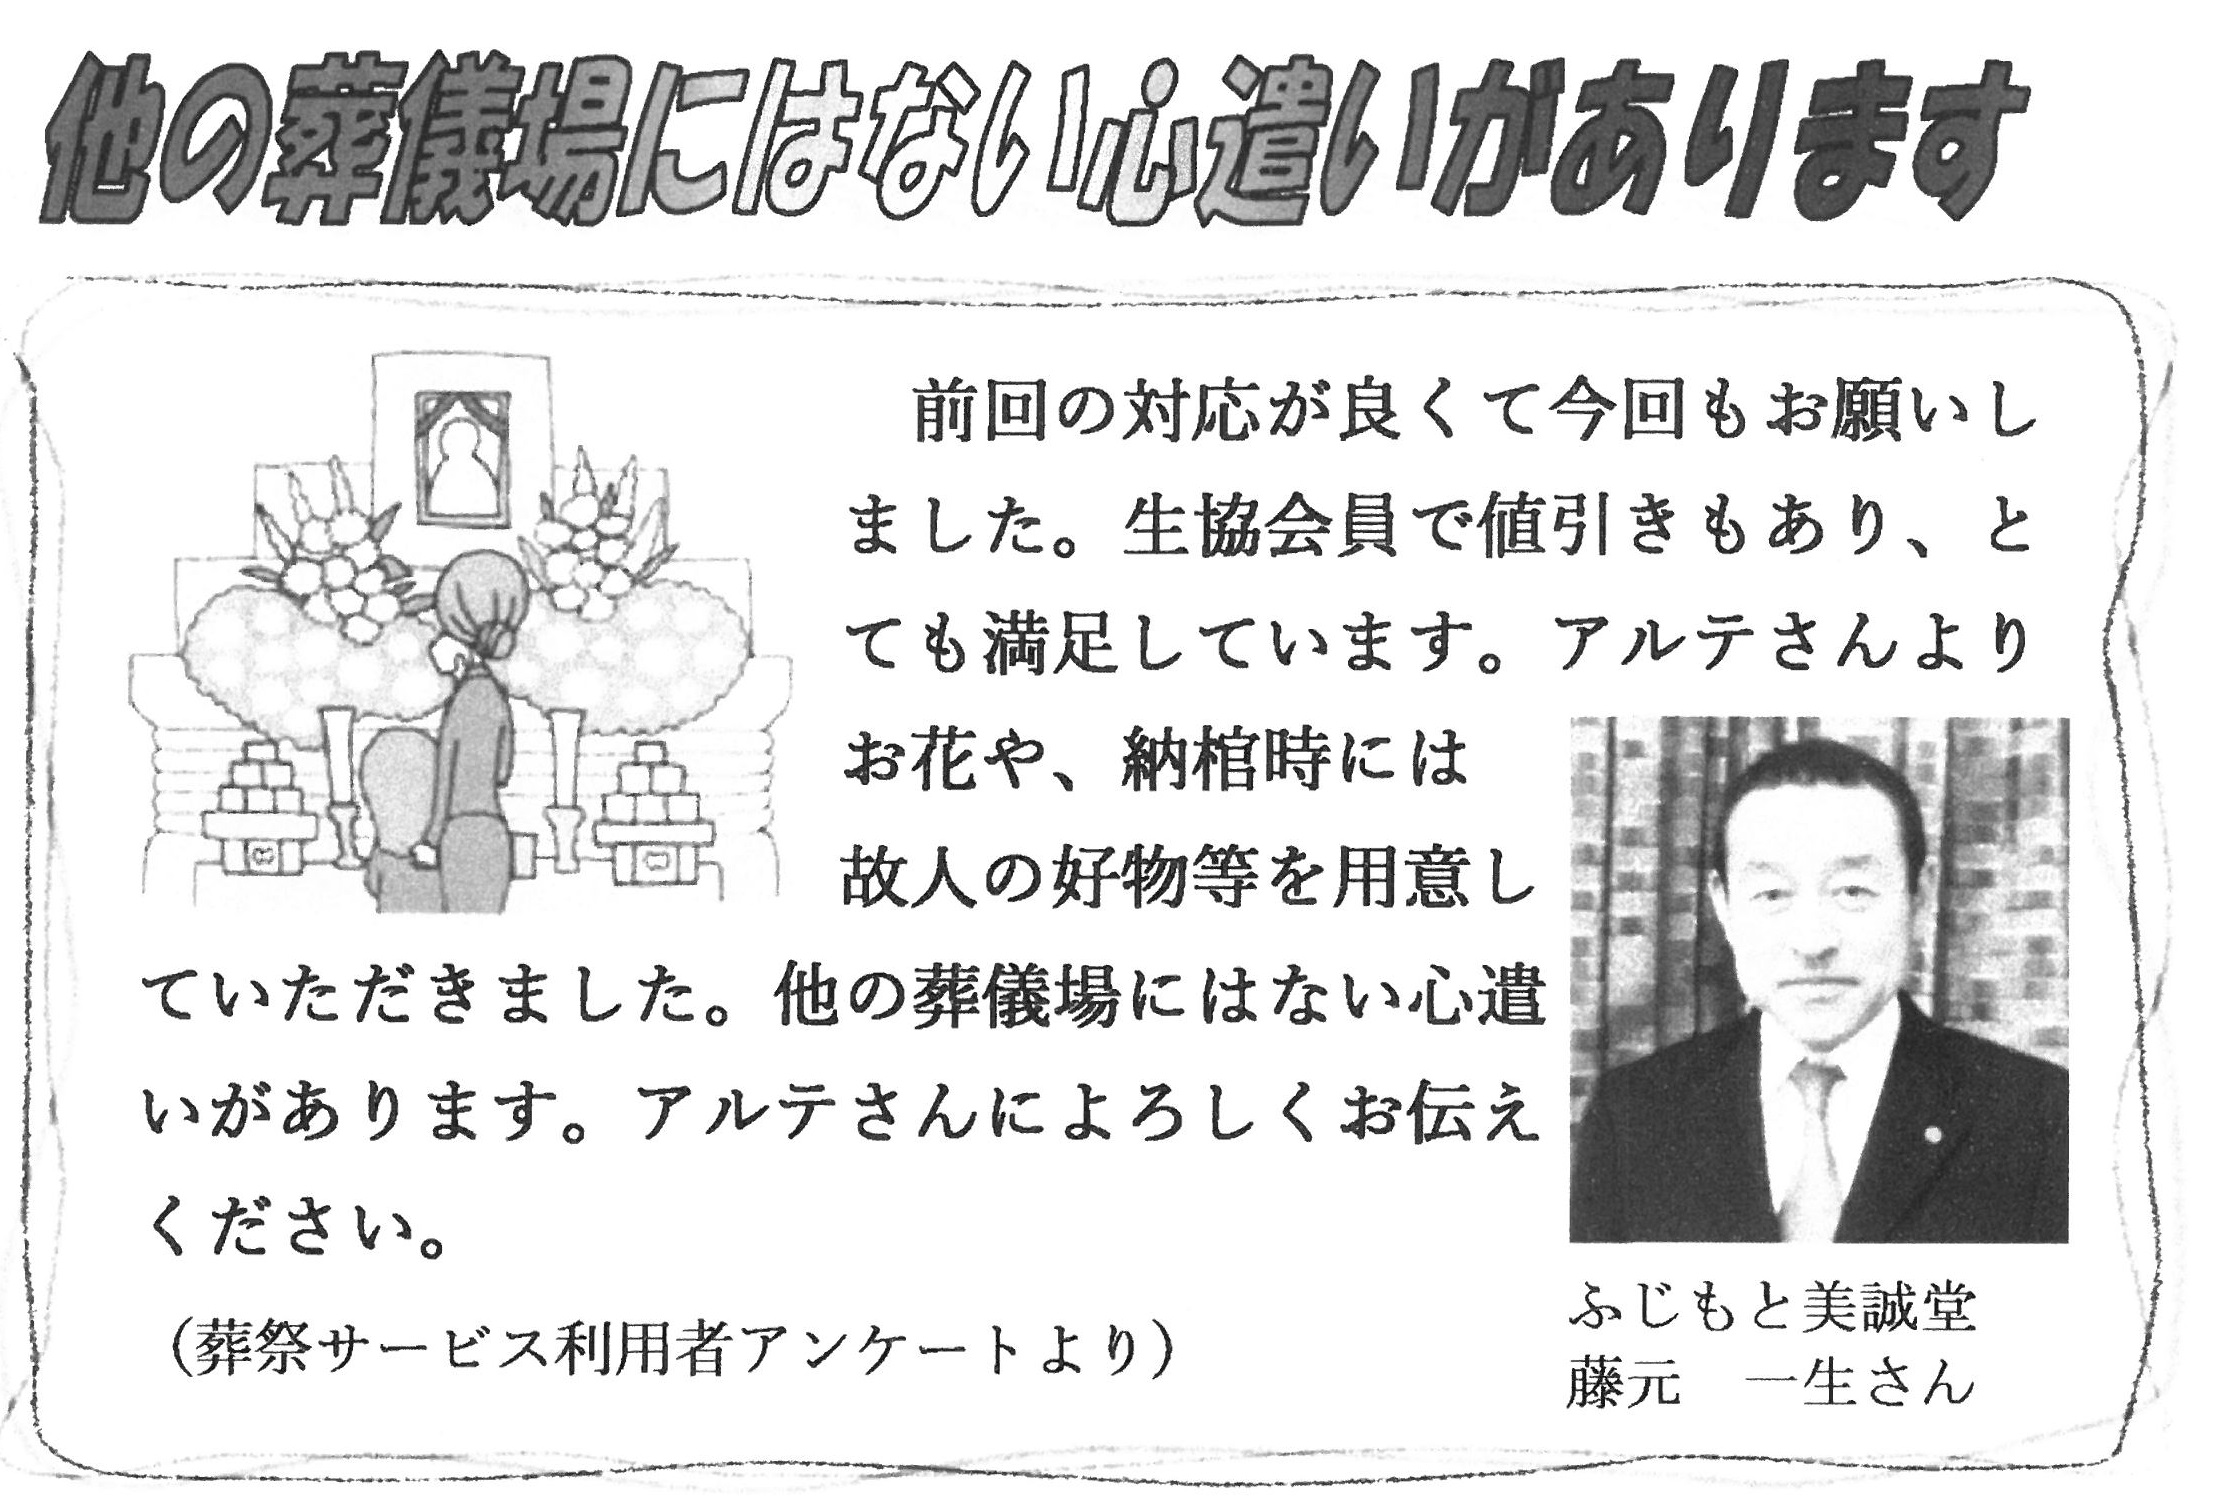 他の葬儀場にはない心遣いがあります
　前回の対応が良くて今回もお願いし
ました。生協会員で値引きもあり、と
ても満足しています。アルテさんより
お花や、納棺時には
故人の好物等を用意し
ていただきました。他の葬儀場にはない心遣
いがあります。アルテさんによろしくお伝え
ください。
（葬祭サービス利用者アンケートより）
ふじもと美誠堂
藤元　一生さん